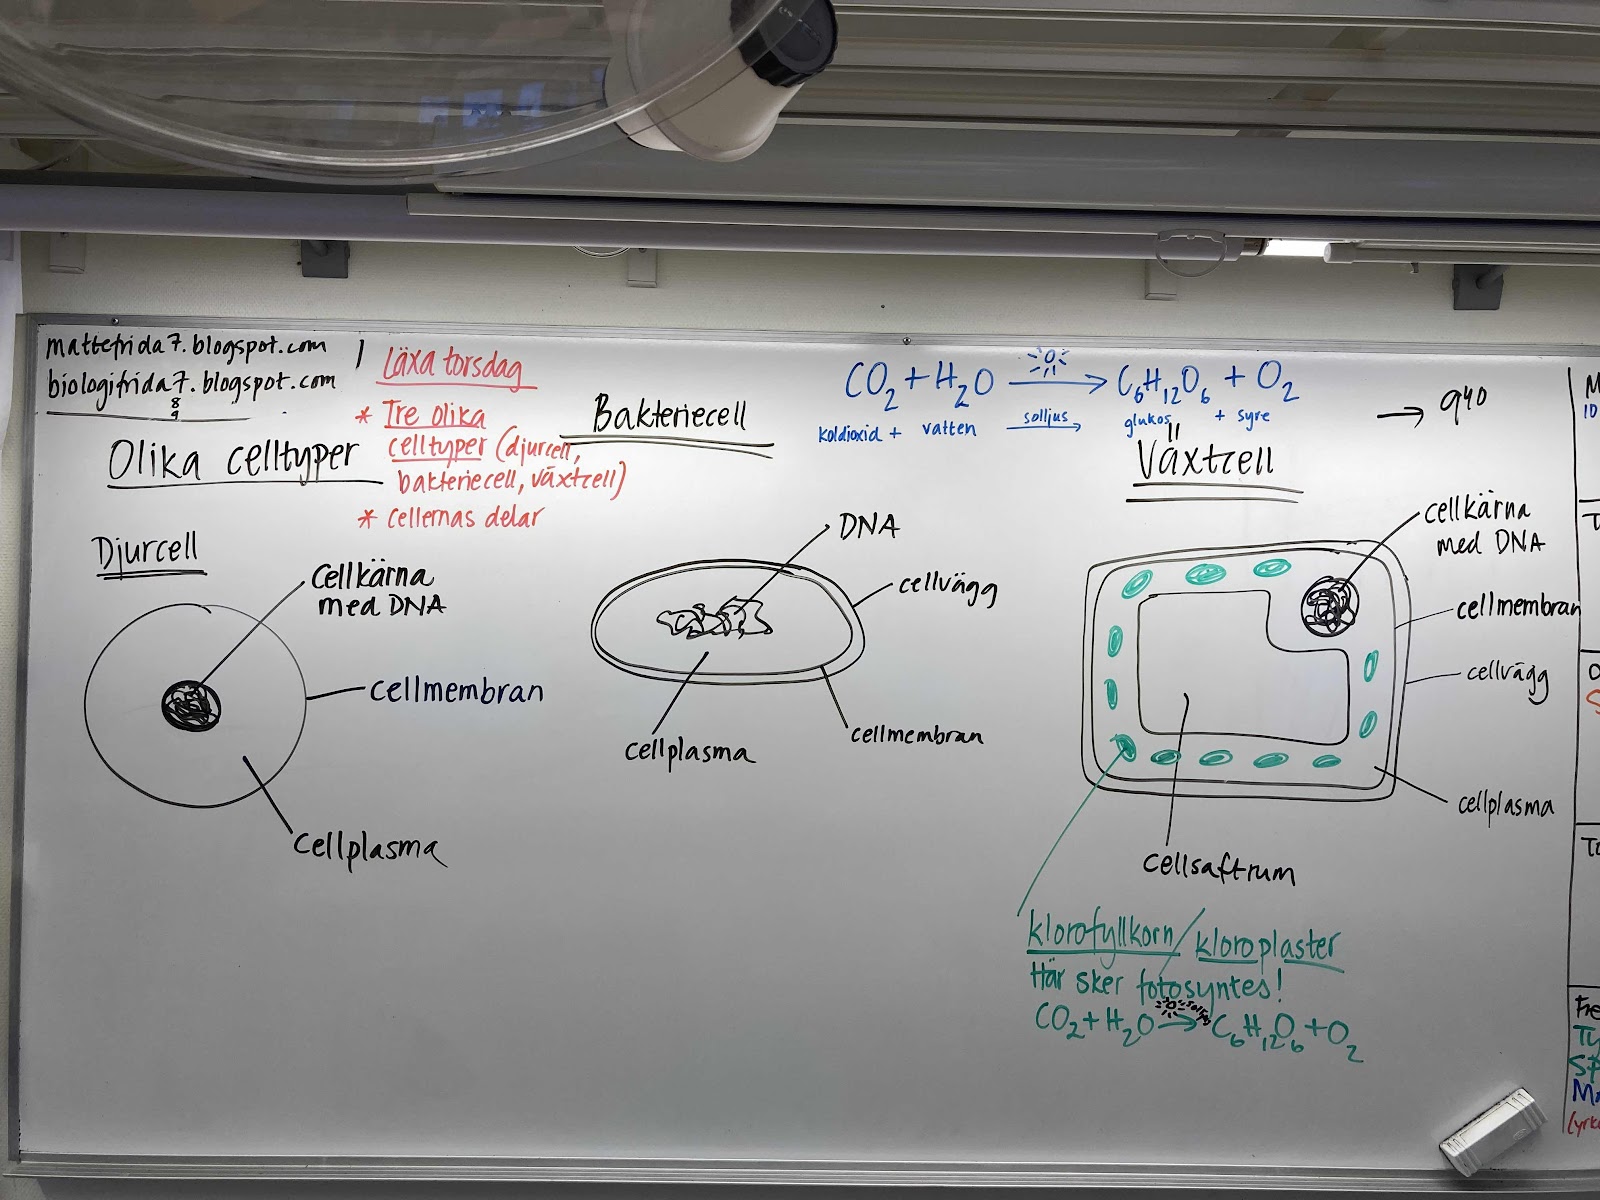 mattefrida7.blogspot.com
biologifrida7.blogspot.com
8
9
Olika celltyper
Läxa torsdag
* Tre olika
celltyper (djurcell,
bakteriecell, växtcell)
* cellernas delar
CO2 + H2O → C6H12O6 + O2
koldioxid + vatten solljus → glukos + syre
→ 9 40
Djurcell
cellkärna
med DNA
cellmembran
cellplasma
Bakteriecell
DNA
cellvägg
cellmembran
cellplasma
Växtcell
cellkärna
med DNA
cellmembran
cellvägg
cellplasma
cellsaftrum
klorofyllkorn / kloroplaster
Här sker fotosyntes!
solljus
CO2 + H2O → C6H12O6 + O2
M
10
Fre